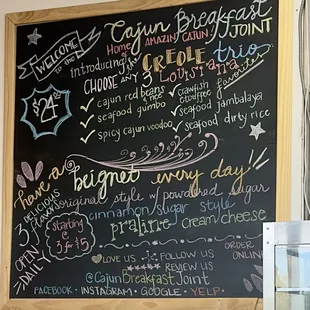 WELCOME TO the Cajun Breakfast JOINT
Home of AMAZIN' CAJUN
introducing the CREOLE trio
CHOOSE any 3 Louisiana favorites
$24
✓ cajun red beans & rice
✓ crawfish etouffee
✓ seafood gumbo
✓ seafood jambalaya
✓ spicy cajun voodoo
✓ seafood dirty rice
have a beignet every day!
3 DELICIOUS flavors
original style w/ powdered sugar
cinnamon sugar style
praline cream cheese
starting @ 3 for $5
OPEN DAILY
LOVE US
FOLLOW US
REVIEW US
ORDER ONLINE
@CajunBreakfastJoint
FACEBOOK • INSTAGRAM • GOOGLE • YELP